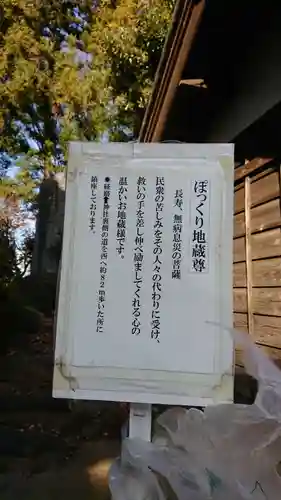 ぽっくり地蔵尊
長寿、無病息災の菩薩
民衆の苦しみをその人々の代わりに受け、
救いの手を差し伸べ励ましてくれる心の
温かいお地蔵様です。
神社裏側の道を西へ約82m歩いた所に
鎮座しております。